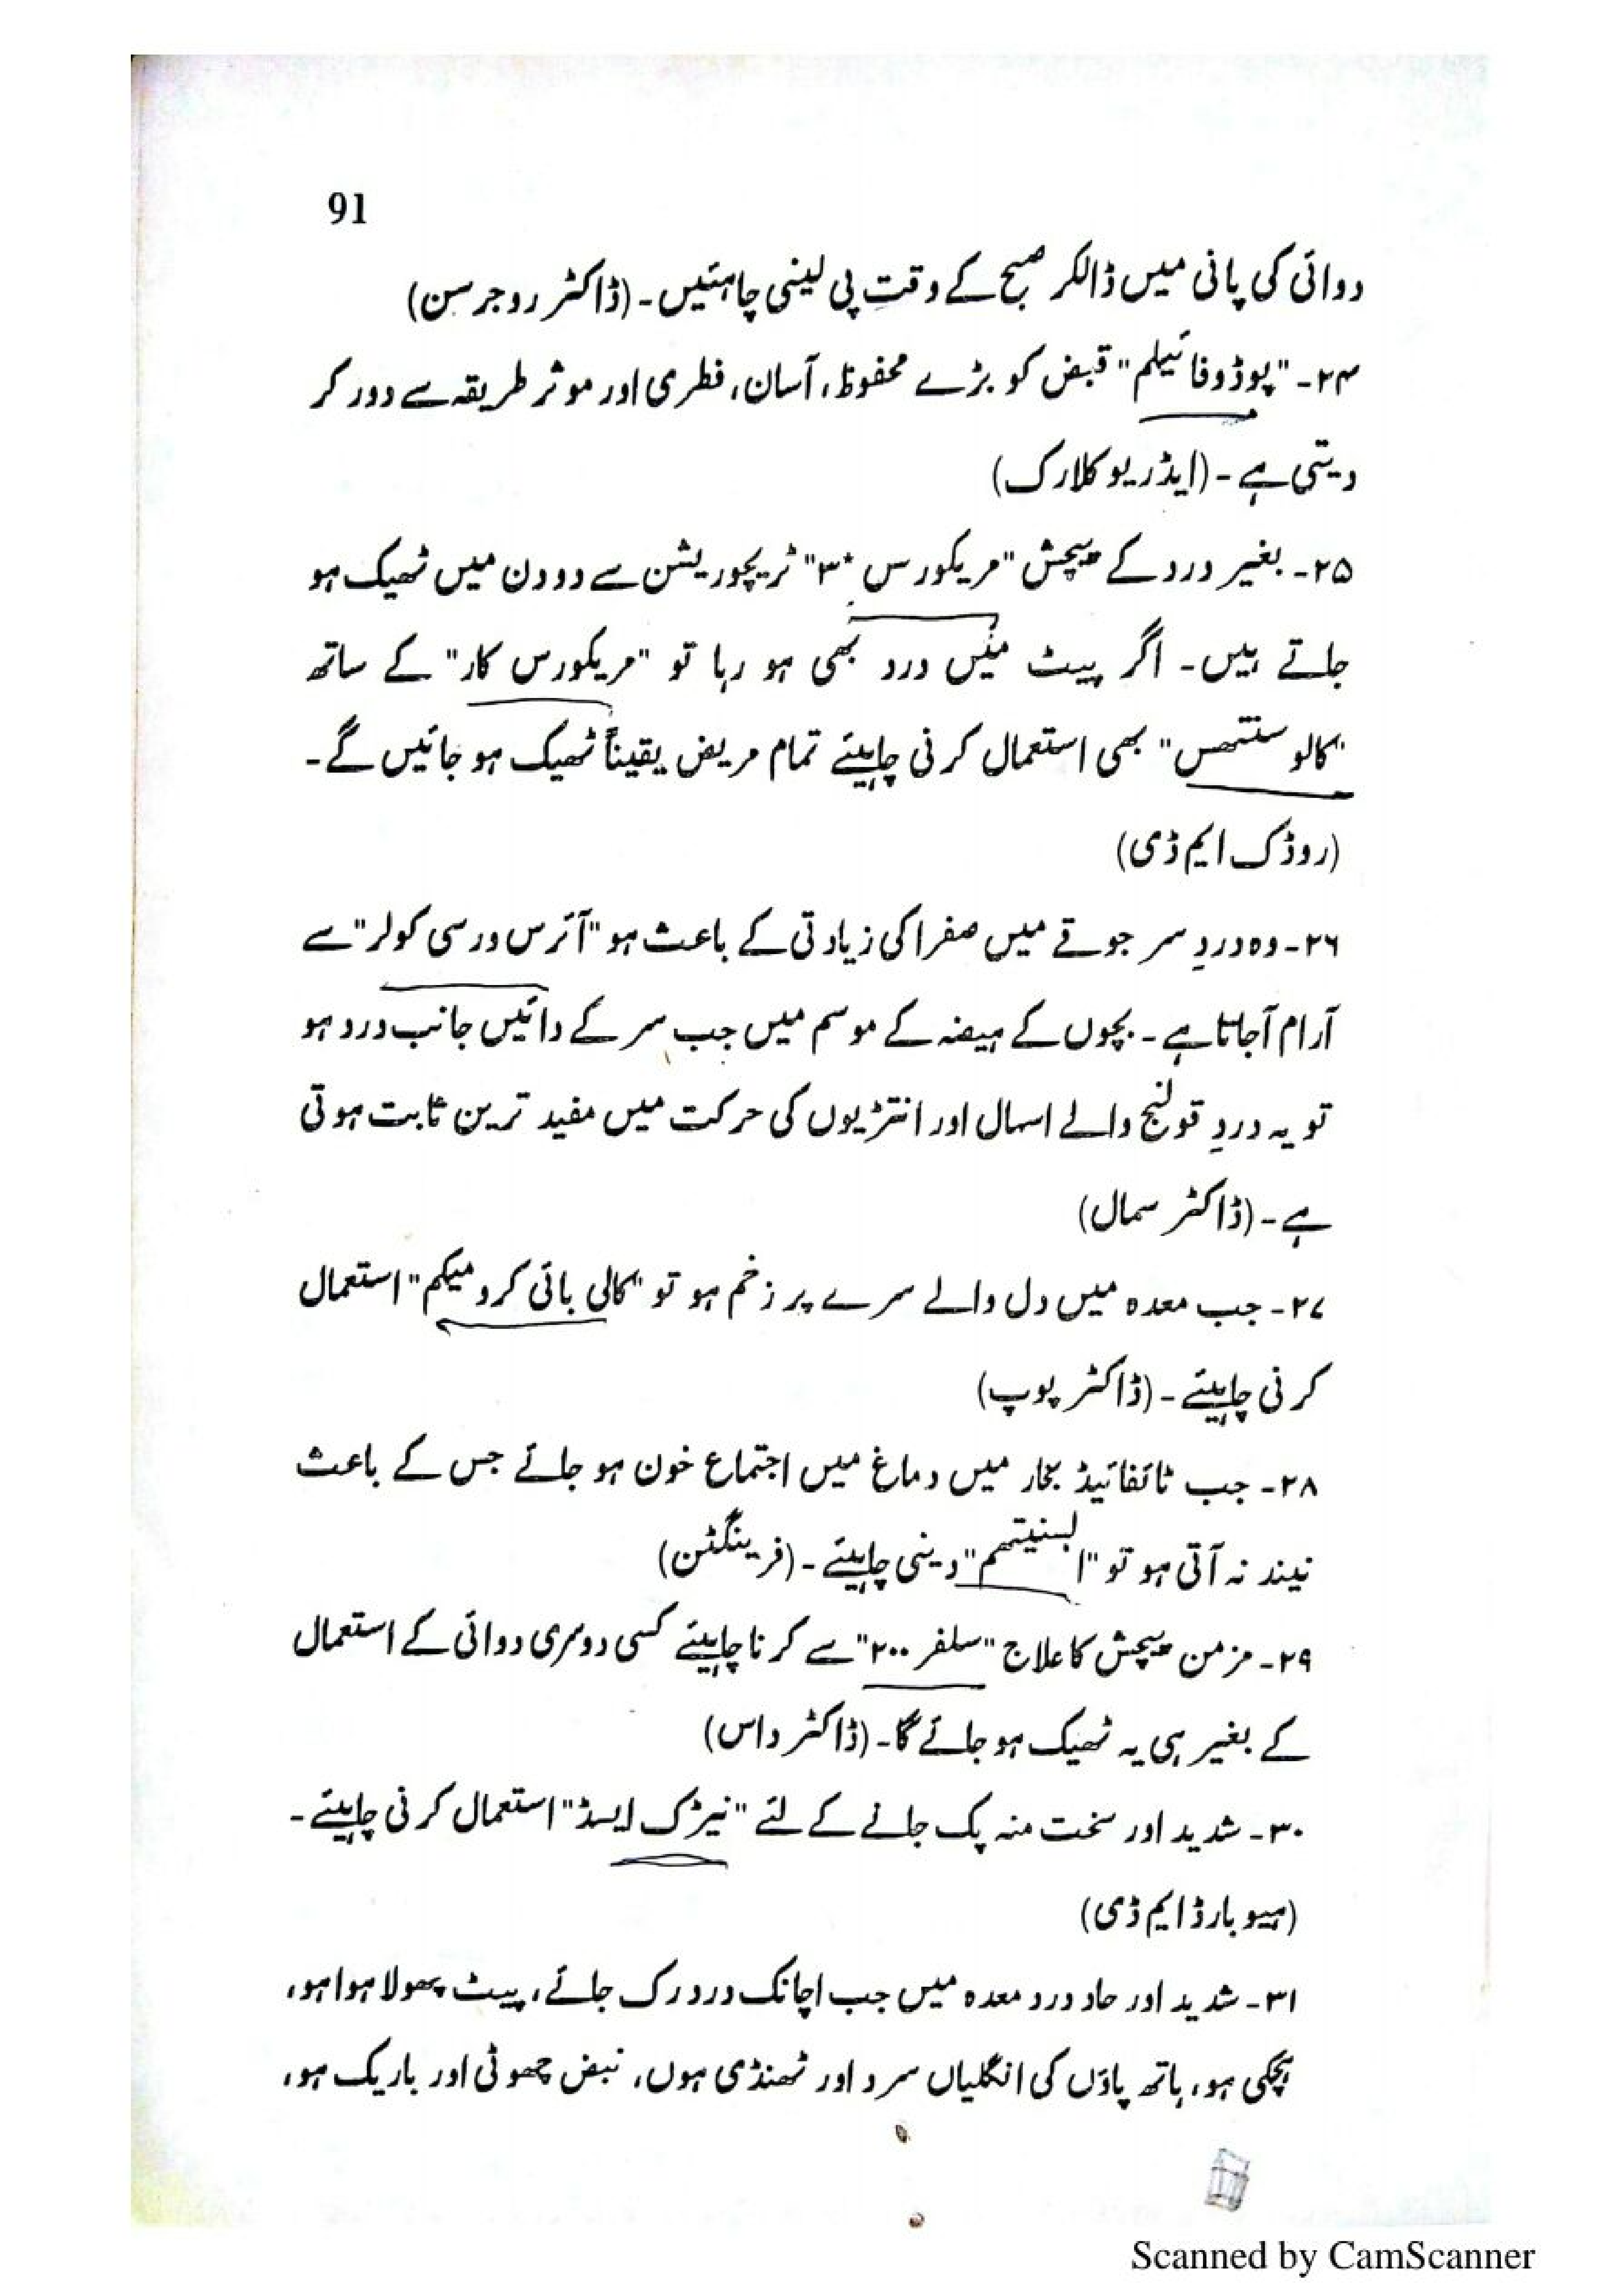 91
دوائی کی پانی میں ڈالکر صبح کے وقت پی لینی چاہئیں۔ (ڈاکٹر روجرسن)
۲۴۔ "پوڈوفائیلم" قبض کو بڑے محفوظ، آسان، فطری اور موثر طریقہ سے دور کر
دیتی ہے۔ (ایڈریو کلارک)
۲۵۔ بغیر درد کے پیچش "مریکورس ۳*" ٹریچوریشن سے دو دن میں ٹھیک ہو
جاتے ہیں۔ اگر پیٹ میں درد بھی ہو رہا تو "مریکورس کار" کے ساتھ
"کالو سنتھس" بھی استعمال کرنی چاہیئے تمام مریض یقیناً ٹھیک ہو جائیں گے۔
(روڈک ایم ڈی)
۲۶۔ وہ دردِ سر جو قے میں صفرا کی زیادتی کے باعث ہو "آئرس ورسی کولر" سے
آرام آجاتا ہے۔ بچوں کے ہیضہ کے موسم میں جب سر کے دائیں جانب درد ہو
تو یہ دردِ قولنج والے اسہال اور انتڑیوں کی حرکت میں مفید ترین ثابت ہوتی
ہے۔ (ڈاکٹر سمال)
۲۷۔ جب معدہ میں دل والے سرے پر زخم ہو تو "کالی بائی کرومیکم" استعمال
کرنی چاہیئے۔ (ڈاکٹر پوپ)
۲۸۔ جب ٹائفائیڈ بخار میں دماغ میں اجتماع خون ہو جائے جس کے باعث
نیند نہ آتی ہو تو "ابسنیتھم" دینی چاہیئے۔ (فرینگٹن)
۲۹۔ مزمن پیچش کا علاج "سلفر ۲۰۰" سے کرنا چاہیئے کسی دوسری دوائی کے استعمال
کے بغیر ہی یہ ٹھیک ہو جائے گا۔ (ڈاکٹر داس)
۳۰۔ شدید اور سخت منہ پک جانے کے لئے "نیڑک ایسڈ" استعمال کرنی چاہیئے۔
(ہیوبارڈ ایم ڈی)
۳۱۔ شدید اور حاد درد معدہ میں جب اچانک درد رک جائے، پیٹ پھولا ہوا ہو،
ہچکی ہو، ہاتھ پاؤں کی انگلیاں سرد اور ٹھنڈی ہوں، نبض چھوٹی اور باریک ہو،
Scanned by CamScanner